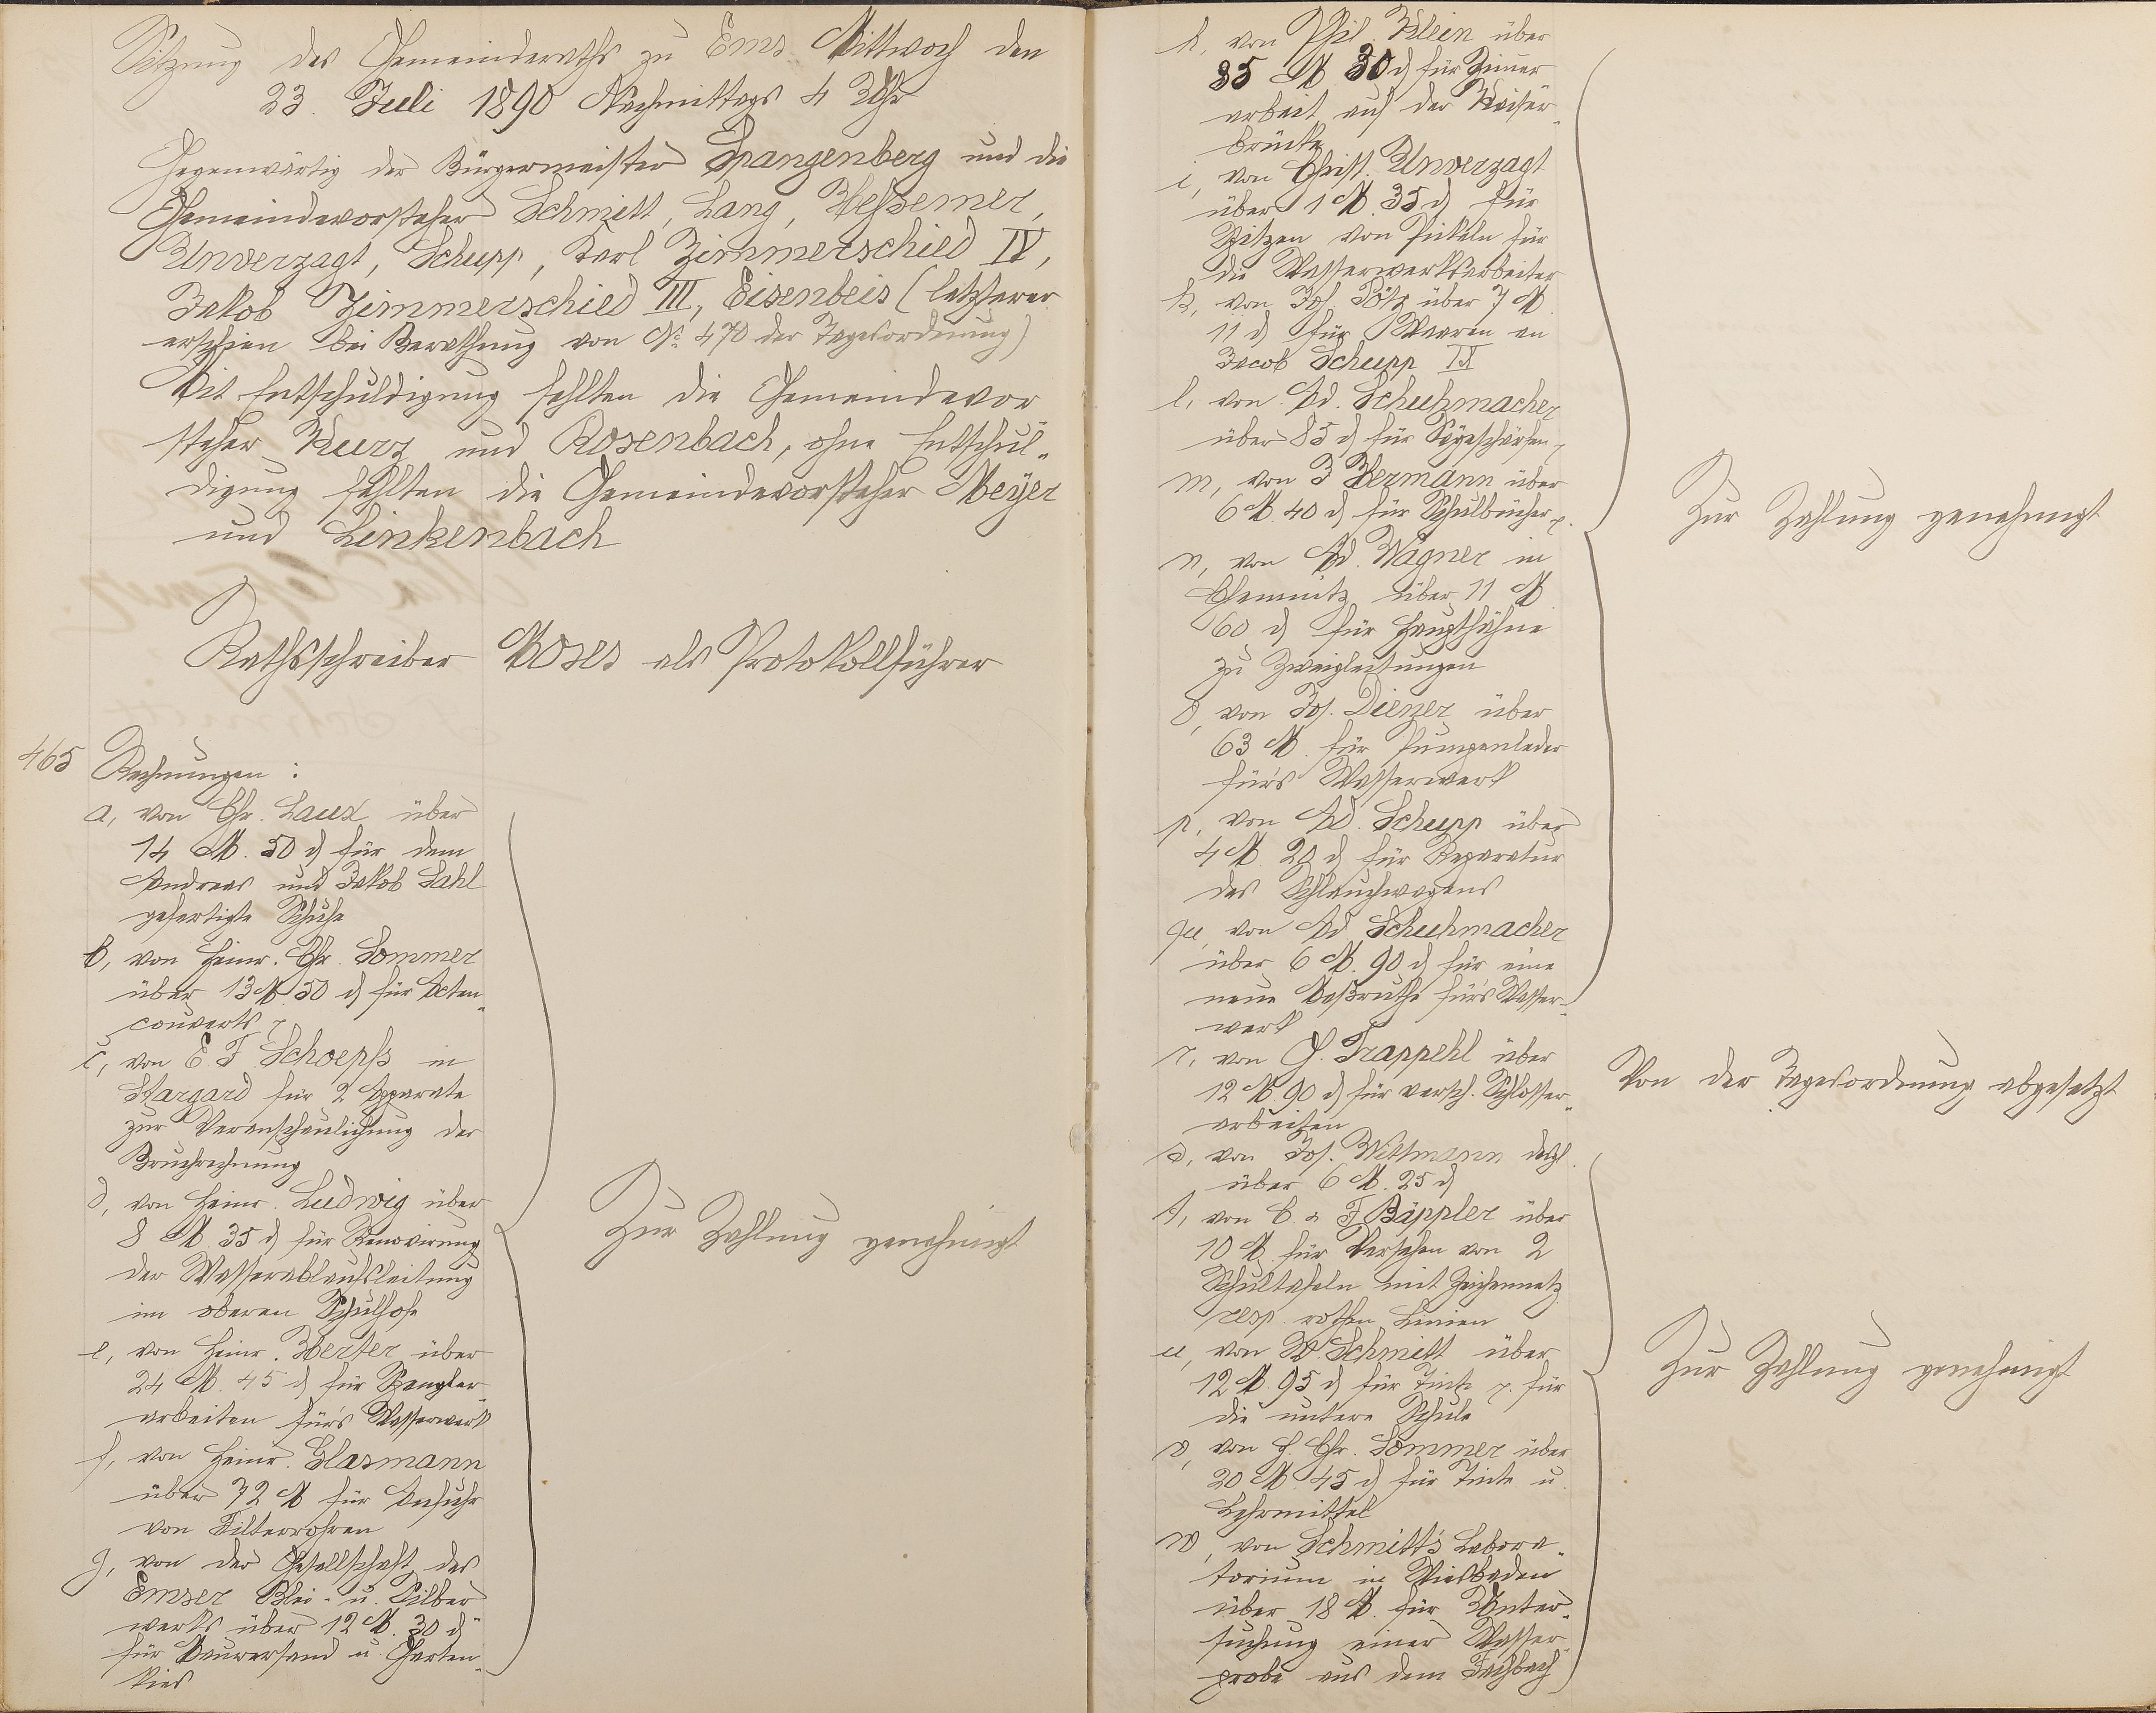 Sitzung des Gemeinderaths zu Ems Mittwoch den
23. Juli 1890 Nachmittags 4 Uhr
Gegenwärtig der Bürgermeister Spangenberg und die
Gemeindevorsteher Schmitt, Lang, Hessemer,
Unverzagt, Schupp, Karl Zimmerschied IV,
Jakob Zimmerschied III, Eisenbeis (letzterer
erschien bei Berathung von № 470 der Tagesordnung)
Mit Entschuldigung fehlten die Gemeindevor
steher Kurz und Rosenbach, ohne Entschul„
digung fehlten die Gemeindevorsteher Meyer
und Linkenbach
Rathsschreiber Moses als Protokollführer
465 Rechnungen:
a, von Chr. Laux über
14 M. 50 d für dem
Andreas und Jakob Sahl
gefertigte Schuhe
b, von Heinr. Chr. Sommer
über 13 M 50 d für Acten„
couverts
c, von E. F. Schoepss in
Stargard für 2 Apparate
zur Veranschaulichung der
Bruchrechnung
d, von Heinr. Ludwig über
8 M 35 d für Renovirung
der Wasserablaufsleitung
im oberen Schulhofe
e, von Heinr. Herter über
24 M. 45 d für Spengler„
arbeiten für's Wasserwerk
f, von Heinr. Glasmann
über 72 M für Anfuhr
von Filterrohren
g, von der Gesellschaft des
Emser Blei- u. Silber„
werks über 12 M. 30 d
für Maurersand u. Garten„
kies
Zur Zahlung genehmigt
h, von Phil. Klein über
85 M 30 d für Zimmer
arbeit auf der Kaiser„
brücke
i, von Christ. Unverzagt
über 1 M. 35 d für
Spitzen von Pickeln für
die Wasserwerksarbeiter
k, von Jos. Pötz über 7 M.
11 d für Waaren an
Jacob Schupp IX
l, von Ad. Schuhmacher
über 85 d für Sägeschärfen
m, von J Hermann über
6 M. 40 d für Schulbücher
n, von Ad. Wagner in
Chemnitz über 11 M
60 d für Haupthähne
zu Zweigleitungen
o, von Jos. Diener über
63 M. für Pumpenleder
für's Wasserwerk
p, von Ad. Schupp über
4 M. 20 d für Reparatur
des Schlauchwagens
qu, von Ad Schuhmacher
über 6 M. 90 d für eine
neue Maßruthe für's Wasser„
werk
Zur Zahlung genehmigt
r, von G. Trappehl über
12 M. 90 d für versch. Schlosser„
arbeiten
Von der Tagesordnung abgesetzt
s, von Jos. Wittmann desgl.
über 6 M. 25 d
t, von C. & F Bäppler über
10 M für Versehen von 2
Schultafeln mit Zeichennetz
resp. rothen Linien
u, von W. Schmitt über
12 M. 95 d für Tinte p. für
die untere Schule
v, von H. Chr. Sommer über
20 M. 45 d für Tinte u.
Lehrmittel
w, von Schmitt's Labora„
torium in Wiesbaden
über 18 M. für Unter„
suchung einer Wasser„
probe aus dem Fachbach
Zur Zahlung genehmigt